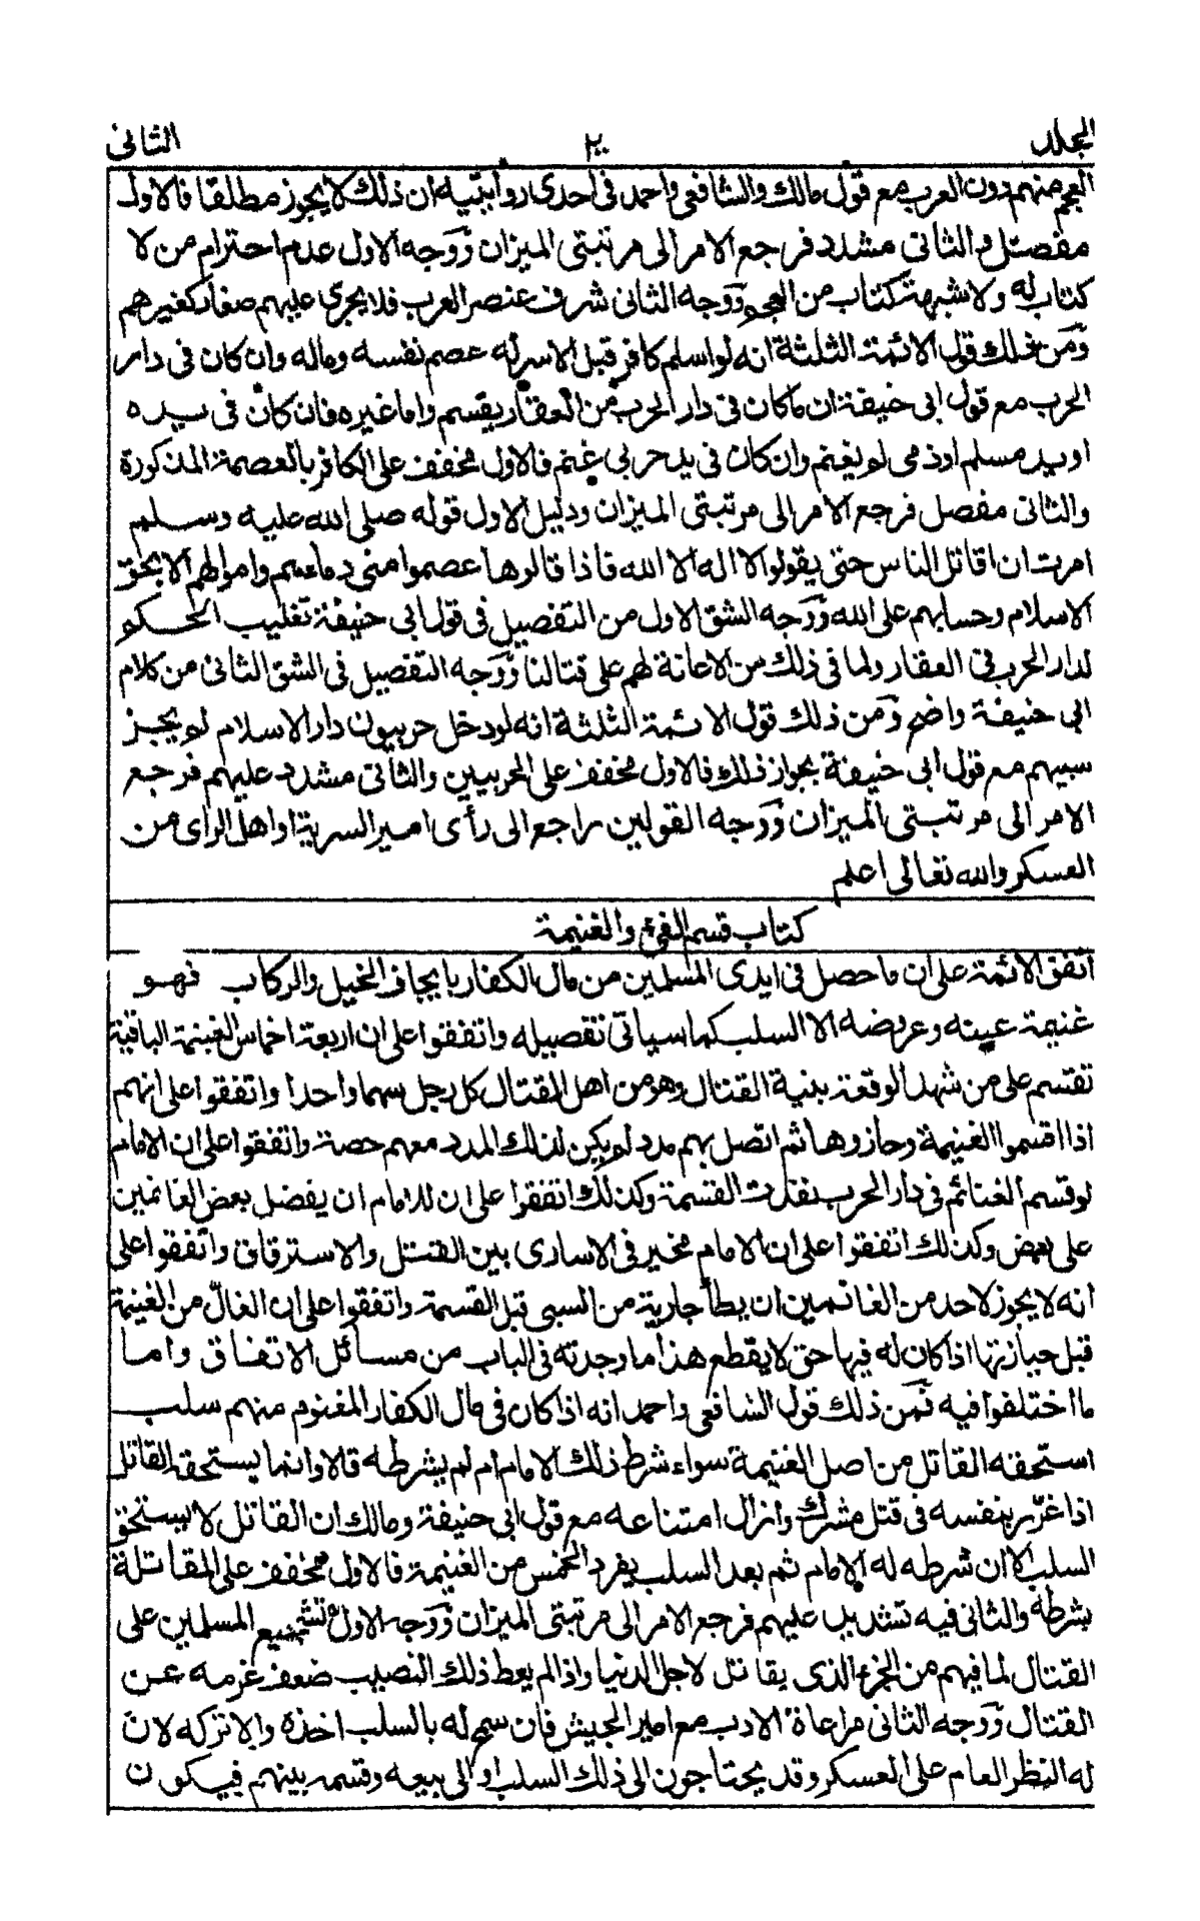 المجلد ٢٠ الثانى
العجم منهم دون العرب مع قول مالك والشافعى واحمد فى احدى روايتيه ان ذلك لا يجوز مطلقا فالاول
مفصل والثانى مشدد فرجع الامر الى مرتبتى الميزان ووجه الاول عدم احترام من لا
كتاب له ولا شبهة كتاب من العجم ووجه الثانى شرف عنصر العرب فلا يجرى عليهم صغار كغيرهم
ومن ذلك قول الائمة الثلثة انه لو اسلم كافر قبل الاسر له عصم نفسه وماله وان كان فى دار
الحرب مع قول ابى حنيفة ان ما كان فى دار الحرب من العقار يقسم واما غيره فان كان فى يده
او يد مسلم او ذمى لم يغنم وان كان فى يد حربى غنم فالاول مخفف على الكافر بالعصمة المذكورة
والثانى مفصل فرجع الامر الى مرتبتى الميزان ودليل الاول قوله صلى الله عليه وسلم
امرت ان اقاتل الناس حتى يقولوا لا اله الا الله فاذا قالوها عصموا منى دماءهم واموالهم الا بحق
الاسلام وحسابهم على الله ووجه الشق الاول من التفصيل فى قول ابى حنيفة تغليب الحكم
لدار الحرب فى العقار ولما فى ذلك من الاعانة لهم على قتالنا ووجه التفصيل فى الشق الثانى من كلام
ابى حنيفة واضح ومن ذلك قول الائمة الثلثة انه لو دخل حربيون دار الاسلام لم يجز
سبيهم مع قول ابى حنيفة بجواز ذلك فالاول مخفف على الحربيين والثانى مشدد عليهم فرجع
الامر الى مرتبتى الميزان ووجه القولين راجع الى رأى امير السرية او اهل الراى من
العسكر والله تعالى اعلم
كتاب قسم الفئ والغنيمة
اتفق الائمة على ان ما حصل فى ايدى المسلمين من مال الكفار بايجاف الخيل والركاب فهو
غنيمة عينه وعروضه الا السلب كما سياتى تفصيله واتفقوا على ان اربعة اخماس الغنيمة الباقية
تقتسم على من شهد الوقعة بنية القتال وهو من اهل القتال كل رجل سهما واحدا واتفقوا على انهم
اذا اقسموا الغنيمة وحازوها ثم اتصل بهم مدد لم يكن لذلك المدد معهم حصة واتفقوا على ان الامام
لو قسم الغنائم فى دار الحرب نفذت القسمة وكذلك اتفقوا على ان للامام ان يفضل بعض الغانمين
على بعض وكذلك اتفقوا على ان الامام مخير فى الاسارى بين القتل والاسترقاق واتفقوا على
انه لا يجوز لاحد من الغانمين ان يطأ جارية من السبى قبل القسمة واتفقوا على ان الغال من الغنيمة
قبل حيازتها اذا كان له فيها حق لا يقطع هذا ما وجدته فى الباب من مسائل الاتفاق واما
ما اختلفوا فيه فمن ذلك قول الشافعى واحمد انه اذا كان فى مال الكفار المغنوم منهم سلب
استحقه القاتل من اصل الغنيمة سواء شرط ذلك الامام ام لم يشرطه قالا وانما يستحقه القاتل
اذا غرر بنفسه فى قتل مشرك وازال امتناعه مع قول ابى حنيفة ومالك ان القاتل لا يستحق
السلب الا ان شرطه له الامام ثم بعد السلب يفرد الخمس من الغنيمة فالاول مخفف على المقاتلة
بشرطه والثانى فيه تشديد عليهم فرجع الامر الى مرتبتى الميزان ووجه الاول تشجيع المسلمين على
القتال لما فيهم من الجزء الذى يقاتل لاجل الدنيا واذا لم يعط ذلك النصيب ضعف عزمه عن
القتال ووجه الثانى مراعاة الادب مع امير الجيش فان سمح له بالسلب اخذه والا تركه لان
له النظر العام على العسكر وقد يحتاجون الى ذلك السلب او الى بيعه وقسمه بينهم فيكون